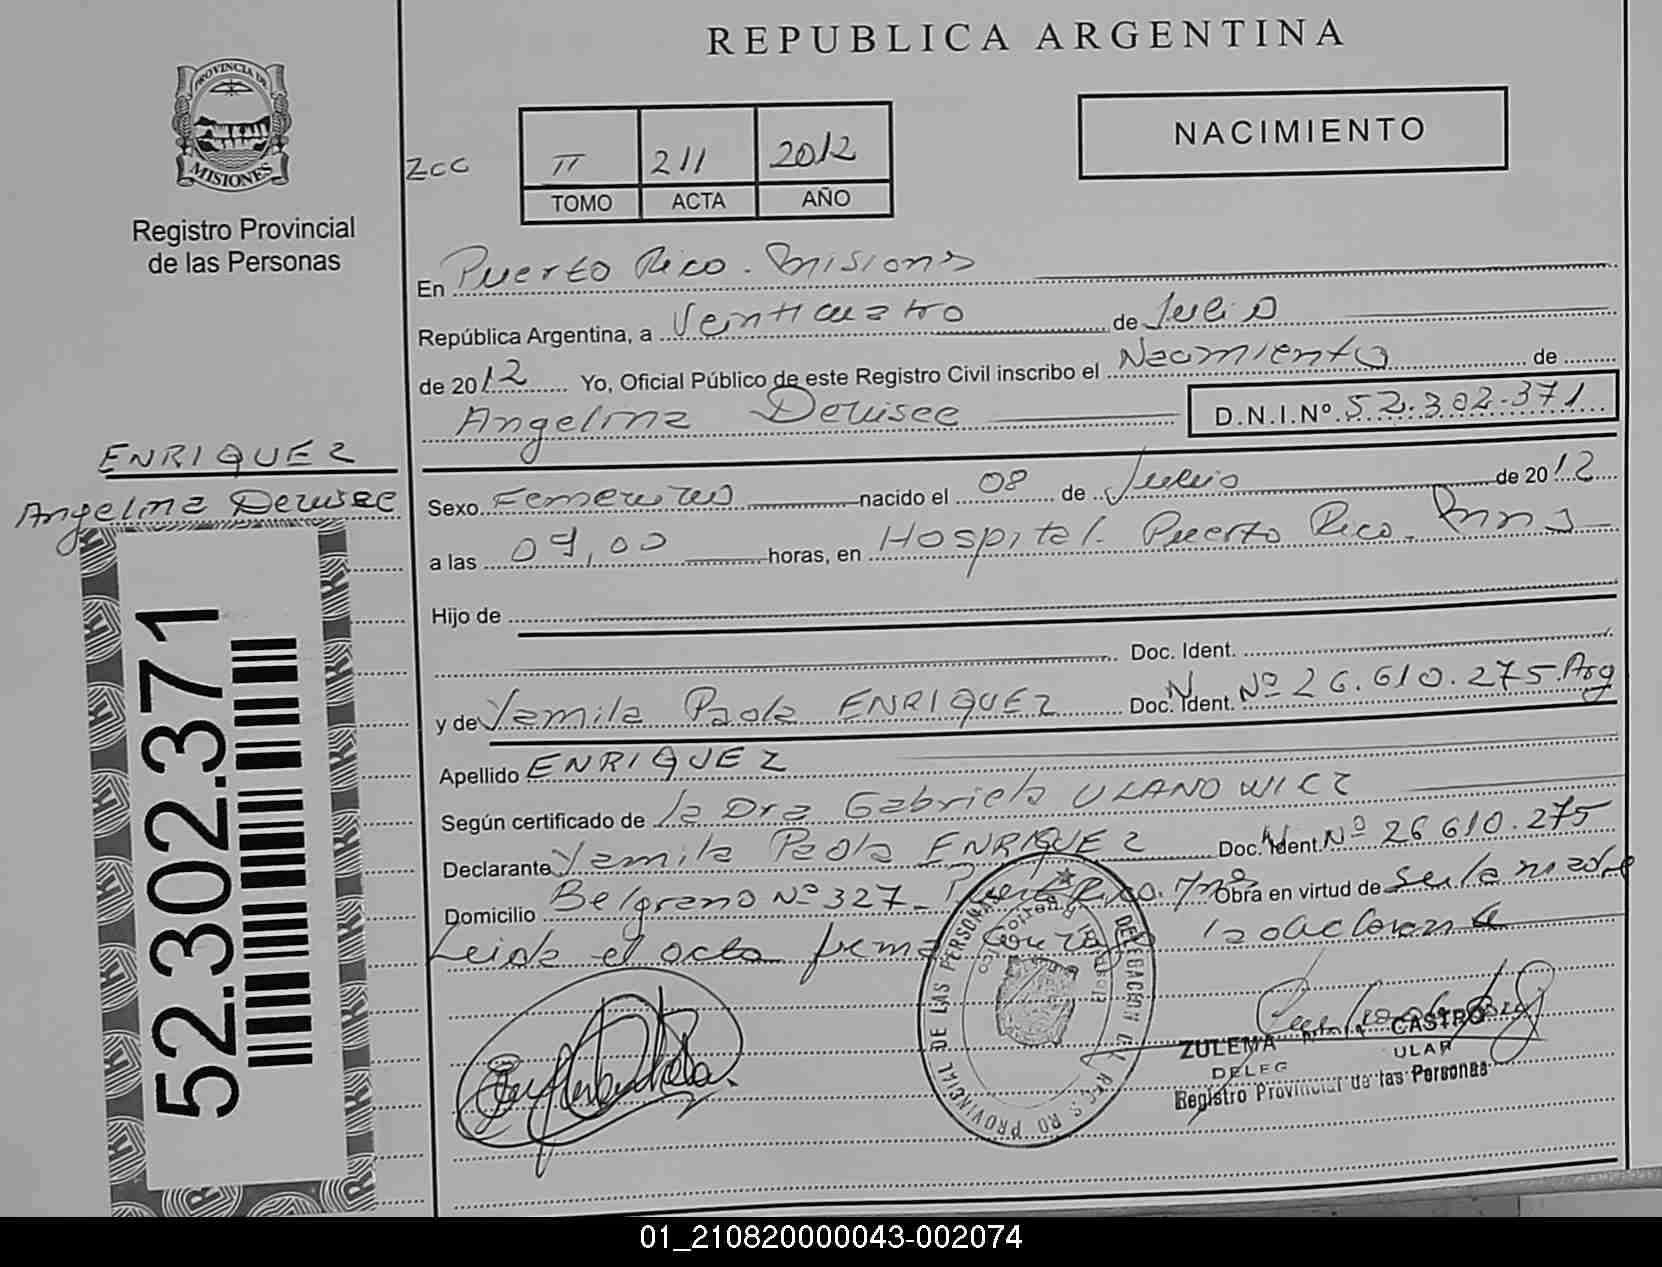 REPUBLICA ARGENTINA
PROVINCIA DE
MISIONES
Registro Provincial
de las Personas
NACIMIENTO
ZCC
II 211 2012
TOMO ACTA AÑO
En Puerto Rico. Misiones
República Argentina, a Veinticuatro de Julio
de 2012 Yo, Oficial Público de este Registro Civil inscribo el Nacimiento de
Angelina D.N.I.Nº 52.302.371
ENRIQUEZ
Angelina
Sexo Femenino nacido el 08 de Julio de 2012
a las 09,00 horas, en Hospital. Puerto Rico. Mnes
Hijo de
Doc. Ident.
y de Yamila Paola ENRIQUEZ Doc. Ident. Nº 26.610.275 Arg
Apellido ENRIQUEZ
Según certificado de la Dra Gabriela ULANOWICZ
Declarante Yamila Paola ENRIQUEZ Doc. Ident. Nº 26 610.275
Domicilio Belgrano Nº 327- Puerto Rico. Mnes Obra en virtud de ser la madre
Leida el acta firma la declarante
52.302.371
REGISTRO PROVINCIAL DE LAS PERSONAS
DELEGACION
ZULEMA CASTRO
DELEG ULAR
Registro Provincial de las Personas
01_210820000043-002074